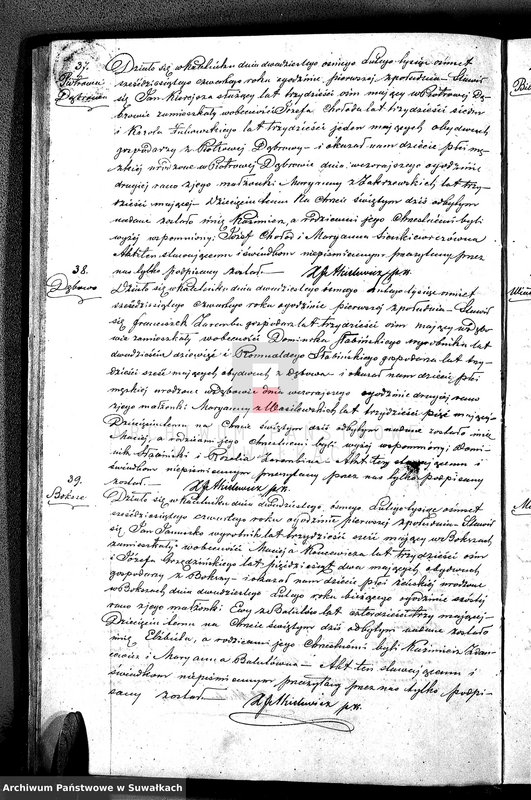 37.
Piotrowa
Dąbrowa
Działo się w Kaletniku dnia dwudziestego ósmego Lutego tysiąc ośmset
sześćdziesiątego czwartego roku o godzinie pierwszej z południa Stawił
się Jan służący lat trzydzieści ośm mający w Piotrowej Dą-
browie zamieszkały w obecności Józefa Chołoda lat trzydzieści siedm
i Karola lat trzydzieści jeden mających obydwóch
gospodarzy z Piotrowej Dąbrowy i okazał nam dziecie płci mę-
zkiej urodzone w Piotrowej Dąbrowie dnia wczorajszego o godzinie
drugiej rano z jego małżonki Maryanny z Zakrzewskich lat trzy-
dzieści mającej Dziecięciu temu na Chrzcie świętym dziś odbytym
nadane zostało imię Kazimierz, a rodzicami jego Chrzestnemi byli
wyżej wspomniony Józef Chołod i Maryanna Sienkiewiczówna
Akt ten stawającemu i świadkom niepismiennym przeczytany przez
nas tylko podpisany został
38.
Dębowo
Działo się w Kaletniku dnia dwudziestego ósmego Lutego tysiąc ośmset
sześćdziesiątego czwartego roku o godzinie pierwszej z południa Stawił
się Franciszek Zaremba gospodarz lat trzydzieści ośm mający w Dębo-
wie zamieszkały w obecności Dominika Stabińskiego wyrobnika lat
dwadzieścia dziewięć i Romualdego Stabińskiego gospodarza lat trzy-
dzieści sześć mających obydwóch z Dębowa i okazał nam dziecie płci
męzkiej urodzone w Dębowie dnia wczorajszego o godzinie drugiej rano
z jego małżonki Maryanny z Wasilewskich lat trzydzieści pięć mającej
Dziecięciu temu na Chrzcie świętym dziś odbytym nadane zostało imie
Maciej, a rodzicami jego Chrzestnemi byli wyżej wspomniony Domi-
nik Stabiński i Rozalia Zarembina Akt ten stawającemu i
świadkom niepismiennym przeczytany przez nas tylko podpisany
został
39.
Boksze
Działo się w Kaletniku dnia dwudziestego ósmego Lutego tysiąc ośmset
sześćdziesiątego czwartego roku o godzinie pierwszej z południa Stawił
się Jan wyrobnik lat trzydzieści sześć mający w Bokszach
zamieszkały w obecności Macieja lat trzydzieści ośm
i Józefa lat pięćdziesiąt dwa mających obydwóch
gospodarzy z Bokszy i okazał nam dziecie płci żeńskiej urodzone
w Bokszach dnia dwudziestego Lutego roku bieżącego o godzinie szóstej
rano z jego małżonki Ewy z Balulów lat czterdzieści trzy mającej
Dziecięciu temu na Chrzcie świętym dziś odbytym nadane zostało
imie Elżbieta, a rodzicami jego Chrzestnemi byli Kazimierz
i Maryanna Balulówna Akt ten stawającemu i
świadkom niepismiennym przeczytany przez nas tylko podpi-
sany został
Archiwum Państwowe w Suwałkach